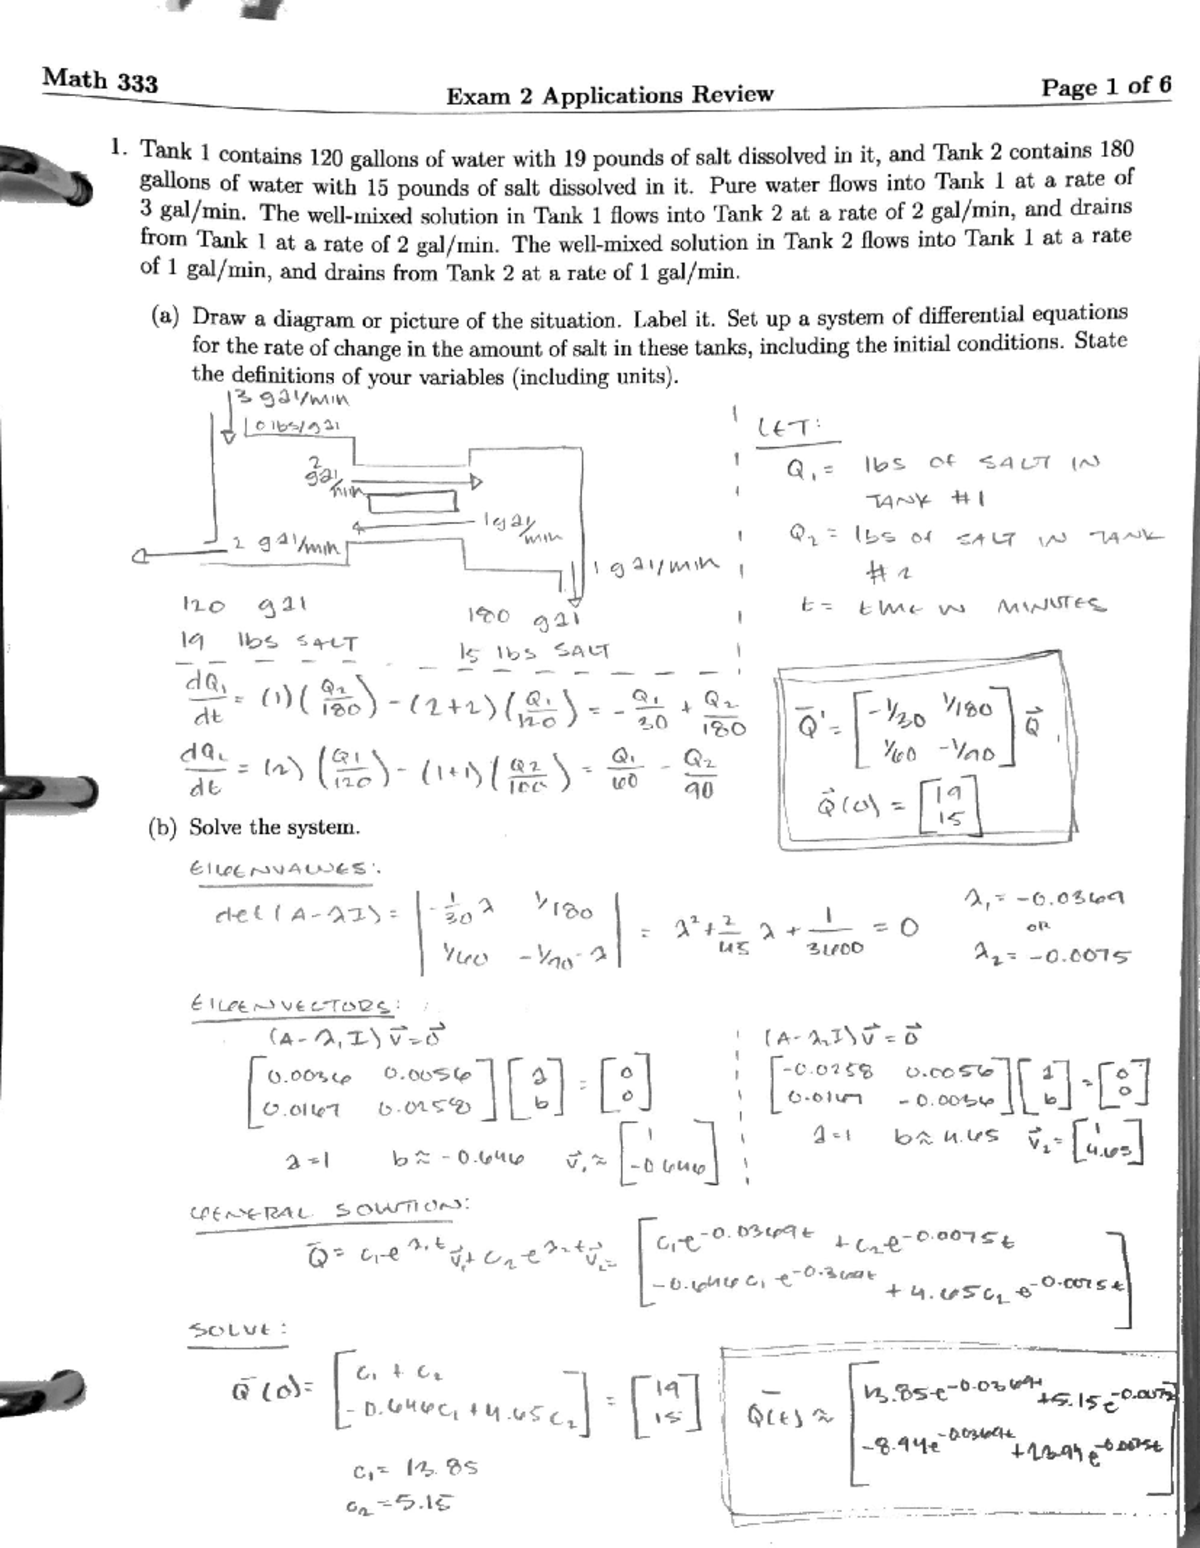 Math 333
Exam 2 Applications Review
Page 1 of 6
1. Tank 1 contains 120 gallons of water with 19 pounds of salt dissolved in it, and Tank 2 contains 180
gallons of water with 15 pounds of salt dissolved in it. Pure water flows into Tank 1 at a rate of
3 gal/min. The well-mixed solution in Tank 1 flows into Tank 2 at a rate of 2 gal/min, and drains
from Tank 1 at a rate of 2 gal/min. The well-mixed solution in Tank 2 flows into Tank 1 at a rate
of 1 gal/min, and drains from Tank 2 at a rate of 1 gal/min.
(a) Draw a diagram or picture of the situation. Label it. Set up a system of differential equations
for the rate of change in the amount of salt in these tanks, including the initial conditions. State
the definitions of your variables (including units).
3 gal/min
0 lbs/gal
2 gal/min
1 gal/min
2 gal/min
1 gal/min
120 gal
19 lbs SALT
180 gal
15 lbs SALT
LET:
Q₁ = lbs of SALT IN
TANK #1
Q₂ = lbs of SALT IN TANK
#2
t = time in MINUTES
dQ₁/dt = (1)(Q₂/180) - (2+2)(Q₁/120) = -Q₁/30 + Q₂/180
dQ₂/dt = (2)(Q₁/120) - (1+1)(Q₂/180) = Q₁/60 - Q₂/90
Q⃗' = [-1/30 1/180
1/60 -1/90] Q⃗,
Q⃗(0) = [19
15]
(b) Solve the system.
EIGENVALUES:
det(A-λI) = |-1/30 λ 1/180
1/60 -1/90-λ| = λ² + 2/45 λ + 1/3600 = 0
λ₁ = -0.0369
OR
λ₂ = -0.0075
EIGENVECTORS:
(A-λ₁I)v⃗ = 0⃗
[0.0036 0.0056
0.0167 0.0258] [a
b] = [0
0]
a = 1 b ≈ -0.646 v⃗₁ ≈ [1
-0.646]
(A-λ₂I)v⃗ = 0⃗
[-0.0258 0.0056
0.0167 -0.0036] [a
b] = [0
0]
a = 1 b ≈ 4.65 v⃗₂ = [1
4.65]
GENERAL SOLUTION:
Q⃗ = c₁e^λ₁t v⃗₁ + c₂e^λ₂t v⃗₂ = [c₁e^-0.0369t + c₂e^-0.0075t
-0.646c₁e^-0.369t + 4.65c₂e^-0.0075t]
SOLVE:
Q⃗(0) = [c₁ + c₂
-0.646c₁ + 4.65c₂] = [19
15]
c₁ = 13.85
c₂ = 5.15
Q(t) ≈ [13.85e^-0.0369t + 5.15e^-0.0075t
-8.94e^-0.0369t + 23.94e^-0.0075t]